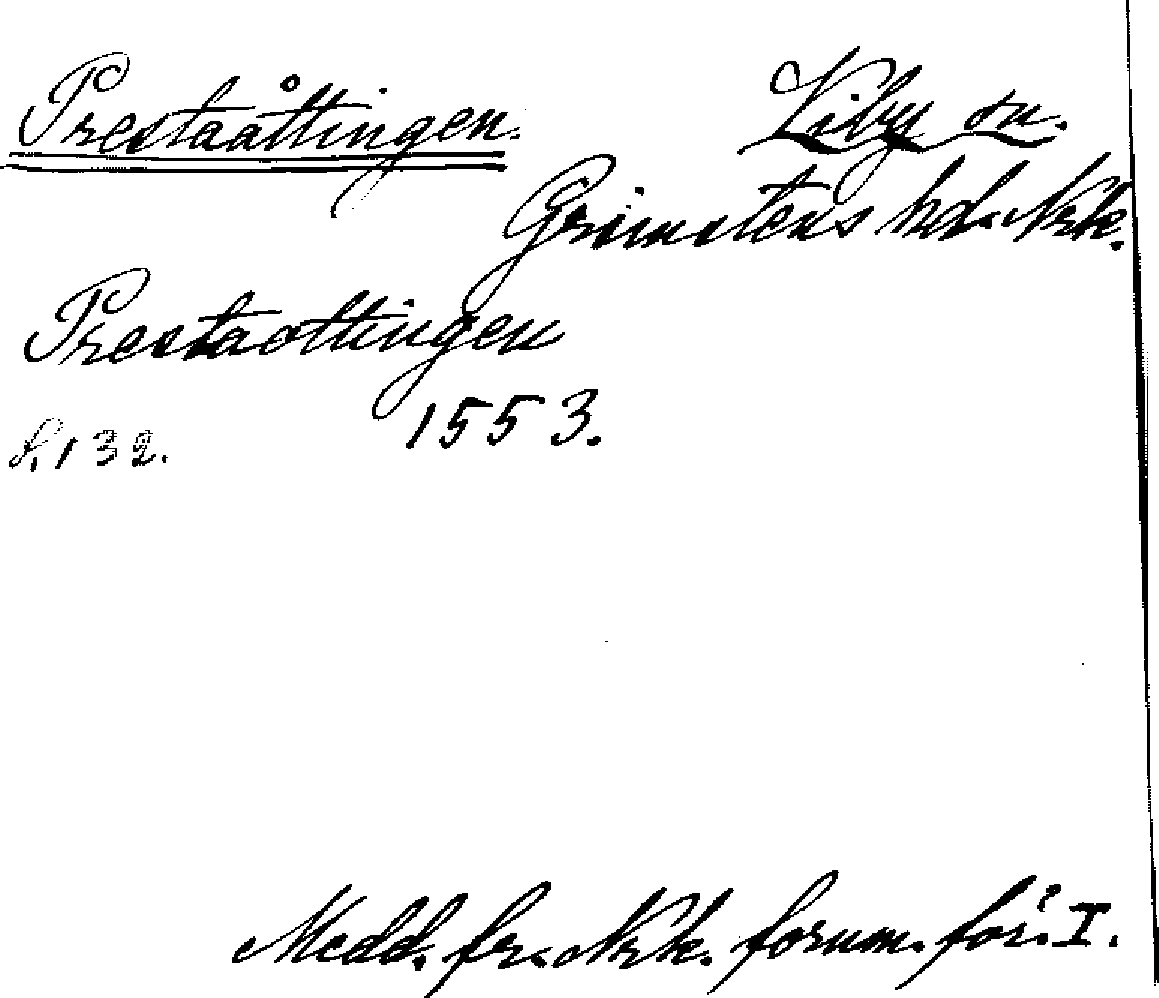 Prestaåttingen.
Viby sn.
Grimstens hd. Nrk.
Prestaottingen
1553.
S. 132.
Medd. fr. Nrk. fornm. för. I.